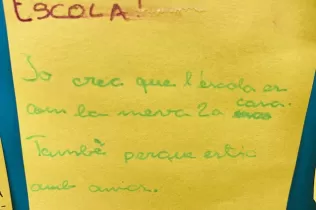 ESCOLA!
Jo crea que l'escola es
com la meva 2a casa.
També perque estic
amb amics.